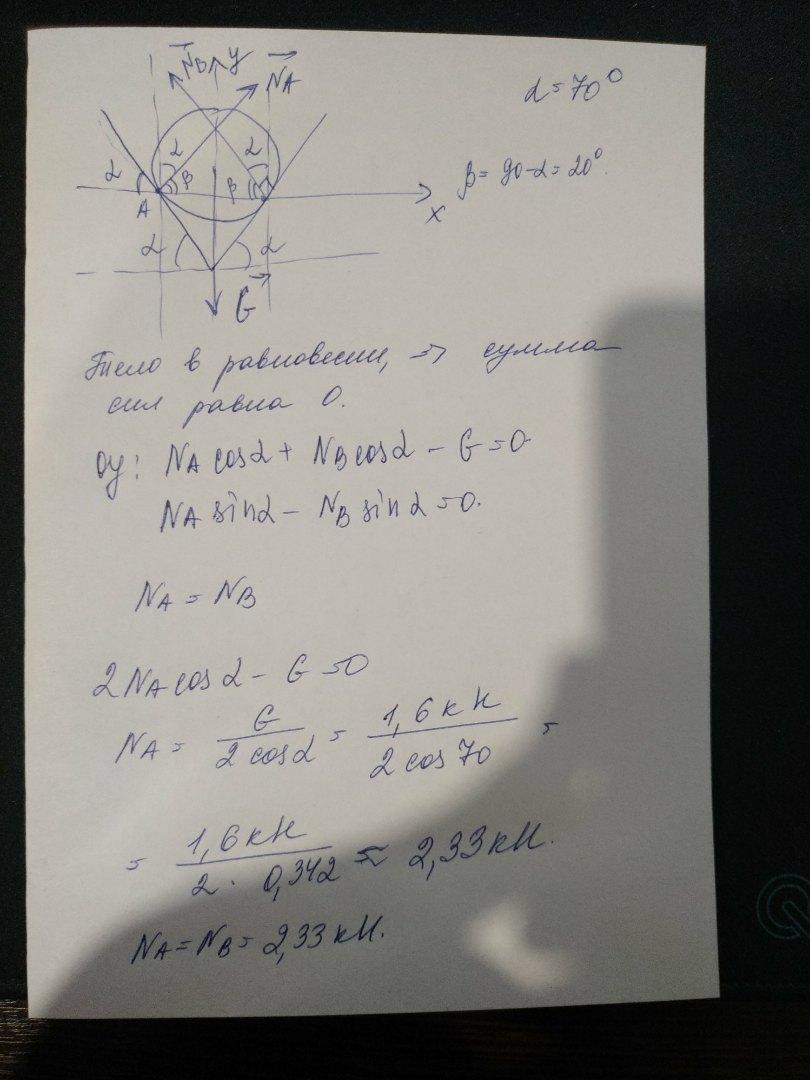 N⃗B y N⃗A
α = 70°
α α α
β β
β = 90 - α = 20°.
A
x
α α
G⃗
Тело в равновесии, => сумма
сил равна 0.
oy: NA cosα + NB cosα - G = 0
NA sinα - NB sinα = 0.
NA = NB
2NA cosα - G = 0
NA = G / 2 cosα = 1,6 кН / 2 cos 70 =
= 1,6 кН / 2 · 0,342 = 2,33 кН.
NA = NB = 2,33 кН.